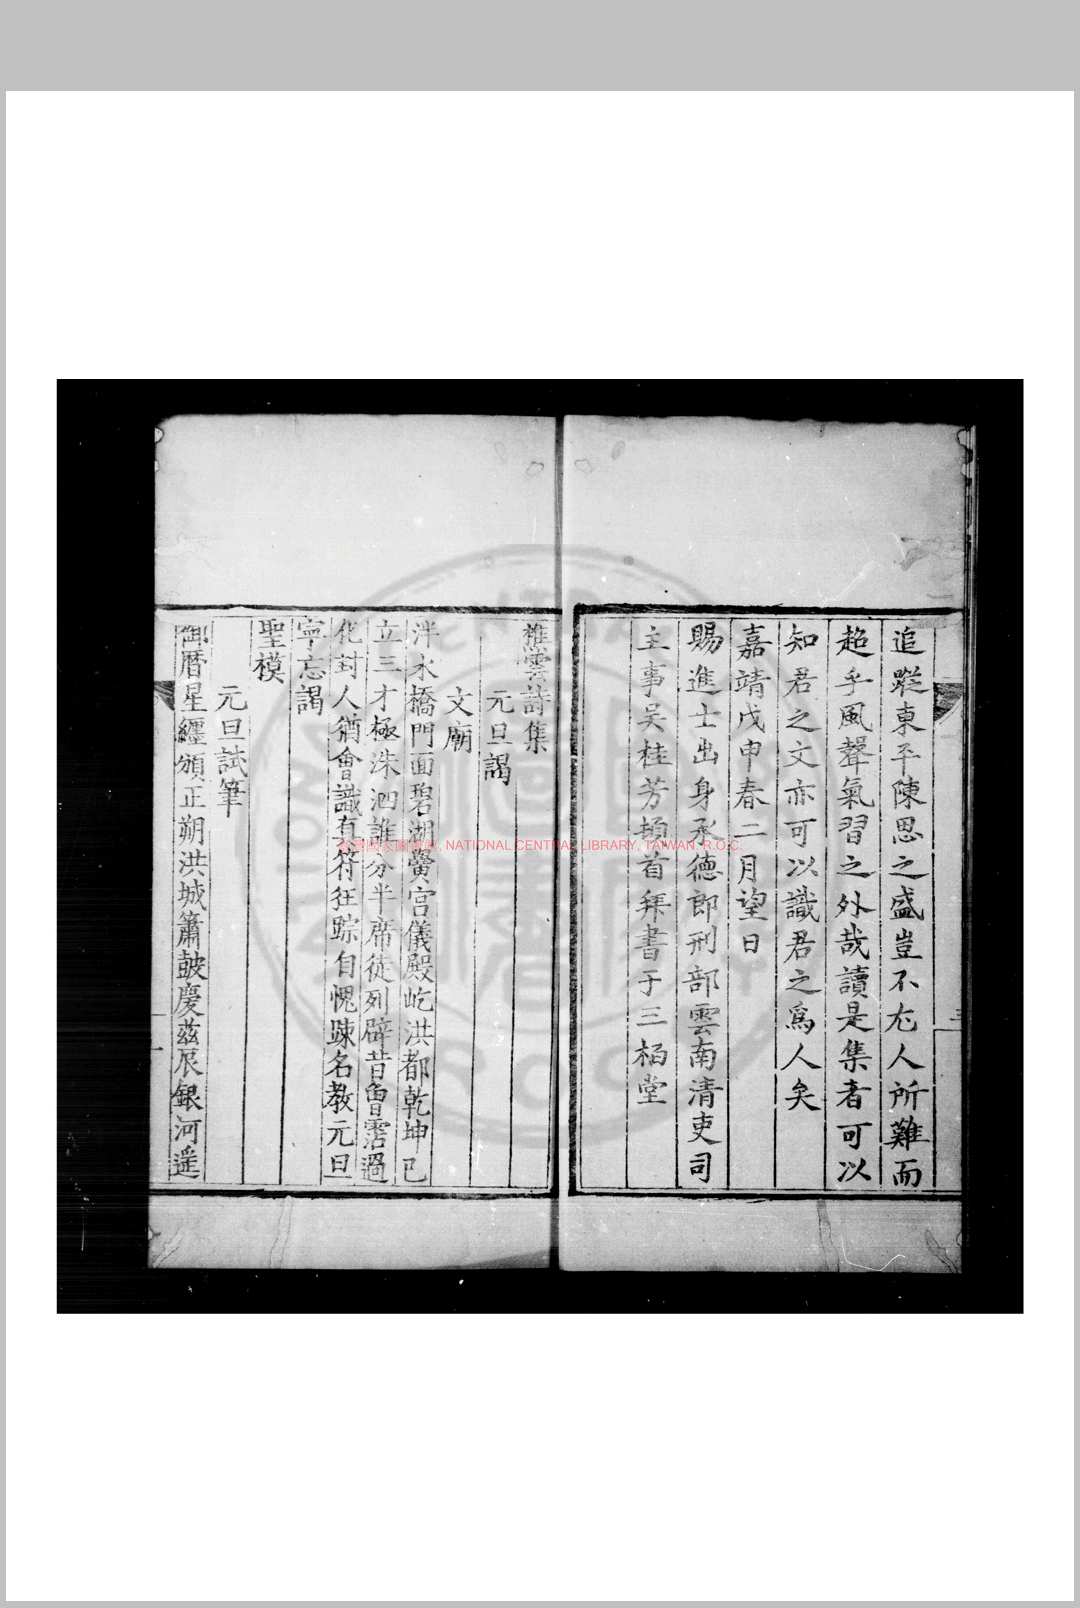 追蹤東平陳思之盛豈不尤人所難而
超乎風聲氣習之外哉讀是集者可以
知君之文亦可以識君之為人矣
嘉靖戊申春二月望日
賜進士出身承德郎刑部雲南清吏司
主事吴桂芳頓首拜書于三栢堂
三
樵雲詩集
元旦謁
文廟
泮水橋門面碧湖黌宮儀殿屹洪都乾坤已
立三才極洙泗誰分半席徒列辟昔曾霑過
化封人猶會識真符狂踪自愧踈名教元旦
寧忘謁
聖模
元旦試筆
御曆星纏頒正朔洪城簫皷慶茲辰銀河遥
一
NATIONAL CENTRAL LIBRARY, TAIWAN, R.O.C.